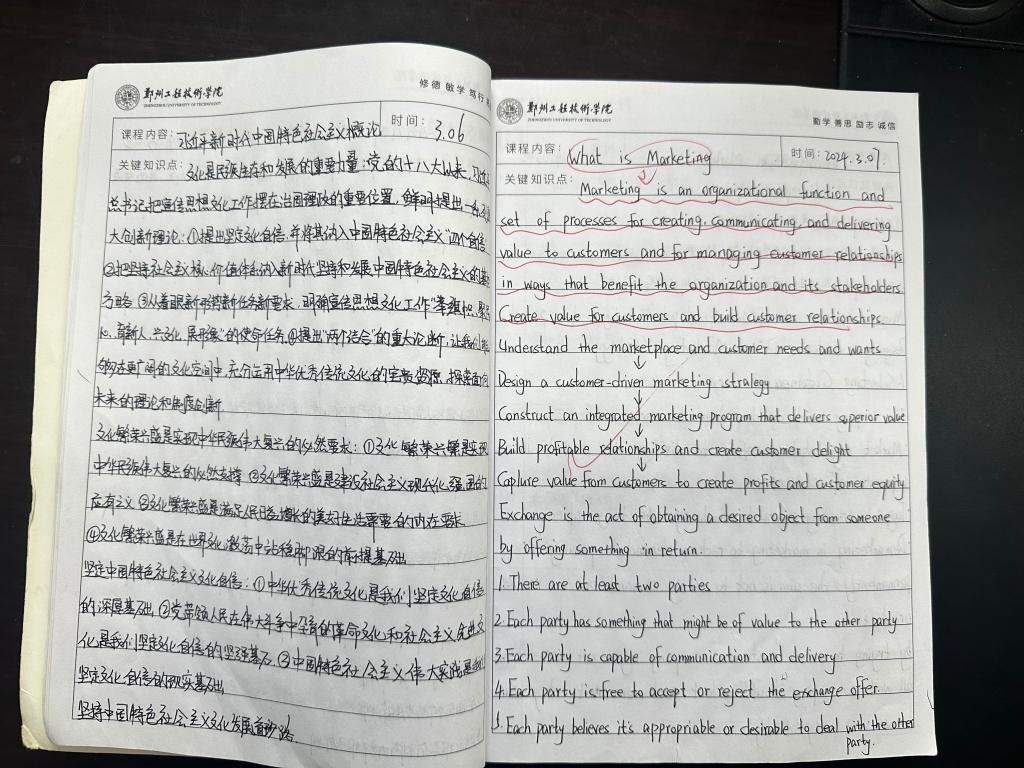 郑州工程技术学院
ZHENGZHOU UNIVERSITY OF TECHNOLOGY
修德 敏学 笃行
课程内容: 习近平新时代中国特色社会主义概论
时间: 3.06
关键知识点: 文化是民族生存和发展的重要力量:党的十八大以来,习近
总书记把宣传思想文化工作摆在治国理政的重要位置,鲜明提出一系列
大创新理论:①提出坚定文化自信,并将其纳入中国特色社会主义"四个自信
②把坚持社会主义核心价值体系纳入新时代坚持和发展中国特色社会主义的基
方略 ③从着眼新形势新任务新要求,明确宣传思想文化工作"举旗帜、聚
心、育新人、兴文化、展形象"的使命任务④提出"两个结合"的重大论断,让我们能
够在更广阔的文化空间中,充分运用中华优秀传统文化的宝贵资源,探索面向
未来的理论和制度创新
文化繁荣兴盛是实现中华民族伟大复兴的必然要求:①文化繁荣兴盛是实现
中华民族伟大复兴的必然支撑 ②文化繁荣兴盛是建设社会主义现代化强国的
应有之义 ③文化繁荣兴盛是满足人民日益增长的美好生活需要的内在要求
④文化繁荣兴盛是在世界文化激荡中站稳脚跟的前提基础
坚定中国特色社会主义文化自信:①中华优秀传统文化是我们坚定文化自信
的深厚基础 ②党带领人民在伟大斗争中孕育的革命文化和社会主义先进文
化是我们坚定文化自信的坚强基石 ③中国特色社会主义伟大实践是我们
坚定文化自信的现实基础
坚持中国特色社会主义文化发展道路
郑州工程技术学院
ZHENGZHOU UNIVERSITY OF TECHNOLOGY
勤学 善思 励志 诚信
课程内容: What is Marketing
时间: 2024.3.07
关键知识点: Marketing is an organizational function and
set of processes for creating, communicating, and delivering
value to customers and for managing customer relationships
in ways that benefit the organization and its stakeholders.
Create value for customers and build customer relationships.
Understand the marketplace and customer needs and wants
↓
Design a customer-driven marketing stralegy
↓
Construct an integrated marketing program that delivers superior value
↓
Build profitable relationships and create customer delight
↓
Caplure value from customers to create profits and customer equity
Exchange is the act of obtaining a desired object from someone
by offering something in return.
1. There are at least two parties
2. Each party has something that might be of value to the other party
3. Each party is capable of communication and delivery
4. Each party is free to accept or reject the exchange offer.
5. Each party believes it's appropriable or desirable to deal with the other
party.